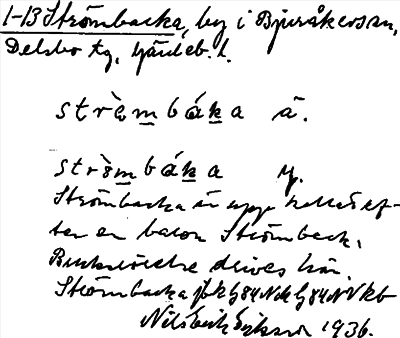 1-13 Strömbacka, by i Bjuråkers sn,
Delsbo tg, Gävleb. l.
strö̀mbáka ä.
strö̀mbáka y.
Strömbacka är uppkallad ef-
ter en baron Strömbeck.
Bruksrörelse drives här.
Strömbacka jbk
Nils Erik Eriksson 1936.